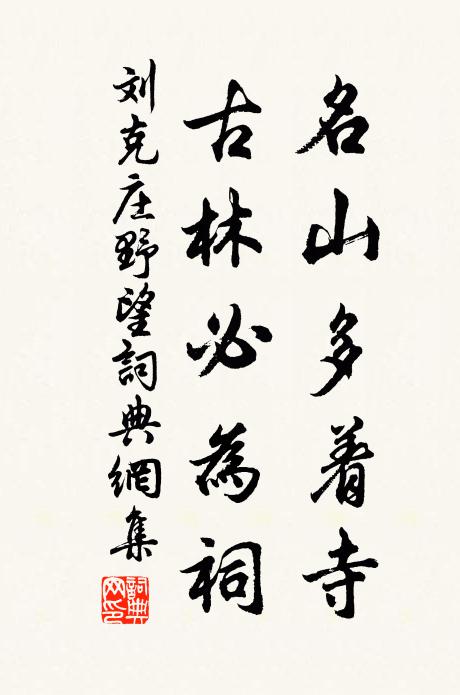 名山多着寺
古林必為祠
刘克庄野望詞典網集
詞典網印